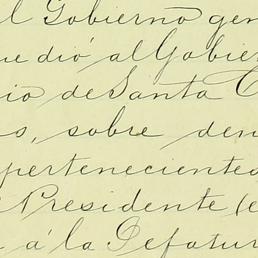 l Gobierno gen
ue dió al Gobier
io de Santa C
os, sobre den
pertenecientes
Presidente (e
á la Jefatur